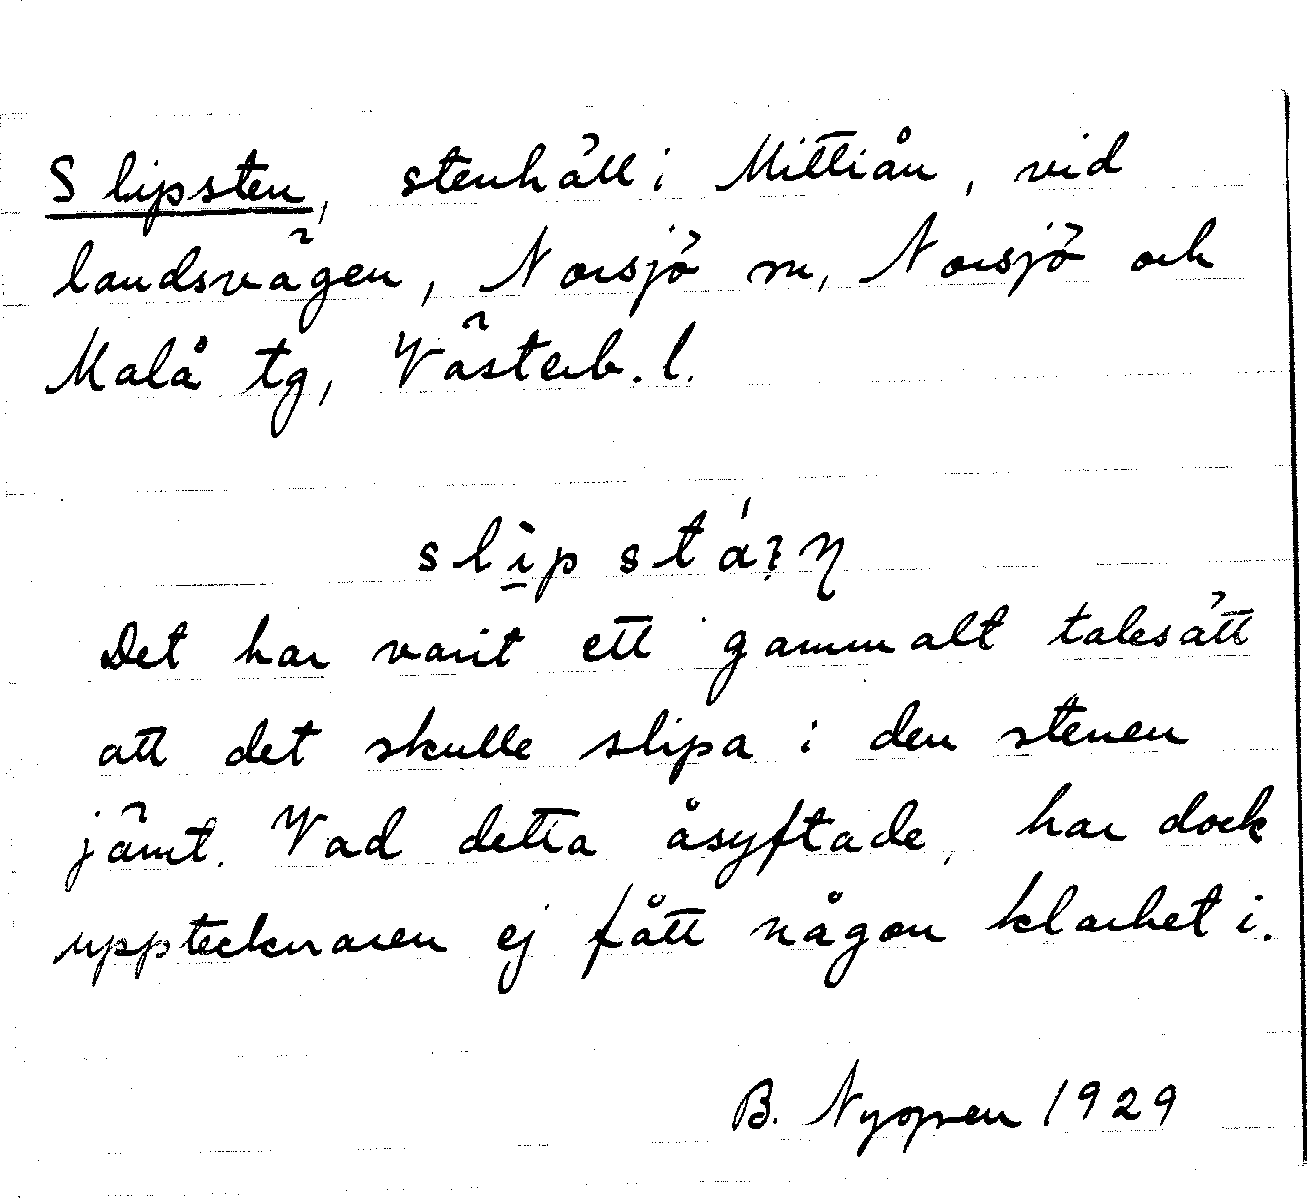 Slipsten, stenhäll i Mittiån, vid
landsvägen, Norsjö sn, Norsjö och
Malå tg, Västerb. l.
Det har varit ett gammalt talesätt
att det skulle slipa i den stenen
jämt. Vad detta åsyftade, har dock
upptecknaren ej fått någon klarhet i.
B. 1929